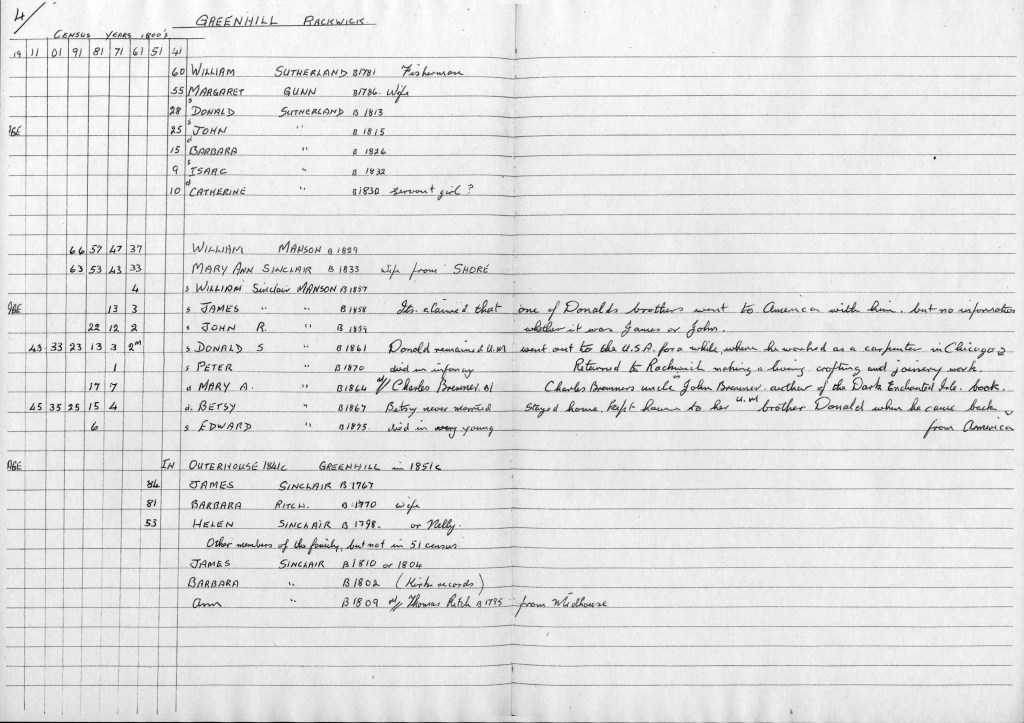 4/
GREENHILL RACKWICK
CENSUS YEARS 1800's
19 11 01 91 81 71 61 51 41
60 WILLIAM SUTHERLAND B1781 Fisherman
55 MARGARET GUNN B1786. Wife
28 s DONALD SUTHERLAND B 1813
AGE 25 s JOHN " B 1815
15 d BARBARA " B 1826
9 s ISAAC " B 1832
10 d CATHERINE " B1830 servant girl ?
66 57 47 37 WILLIAM MANSON B 1829
63 53 43 33 MARY ANN SINCLAIR B 1833 Wife from SHORE
4 s WILLIAM Sinclair MANSON B 1857
AGE 13 3 s JAMES " " B 1858 Its claimed that one of Donalds brothers went to America with him. but no information
22 12 2 s JOHN R. " B 1859 whether it was James or John.
43 33 23 13 3 2m s DONALD S " B 1861 Donald remained U.M went out to the U.S.A. for a while, where he worked as a carpenter in Chicago &
1 s PETER " B 1870 died in infancy Returned to Rackwick making a living crofting and joinery work.
17 7 d MARY A. " B 1864 w/ Charles Bremner. B1 Charles Bremners uncle is John Bremner. author of the Dark Enchanted Isle. book.
45 35 25 15 4 d. BETSY " B 1867 Betsy never married stayed home. Kept house to her U.M brother Donald when he came back
6 s EDWARD " B 1875 died in very young from America
AGE IN OUTERHOUSE 1841c GREENHILL in 1851c
84 JAMES SINCLAIR B 1767
81 BARBARA RITCH. B 1770 wife
53 HELEN SINCLAIR B 1798. or Nelly.
Other members of the family, but not in 51 census
JAMES SINCLAIR B 1810 or 1804
BARBARA " B 1802 (Kirk records)
Ann " B 1809 w/ Thomas Ritch B 1795 from Midhouse